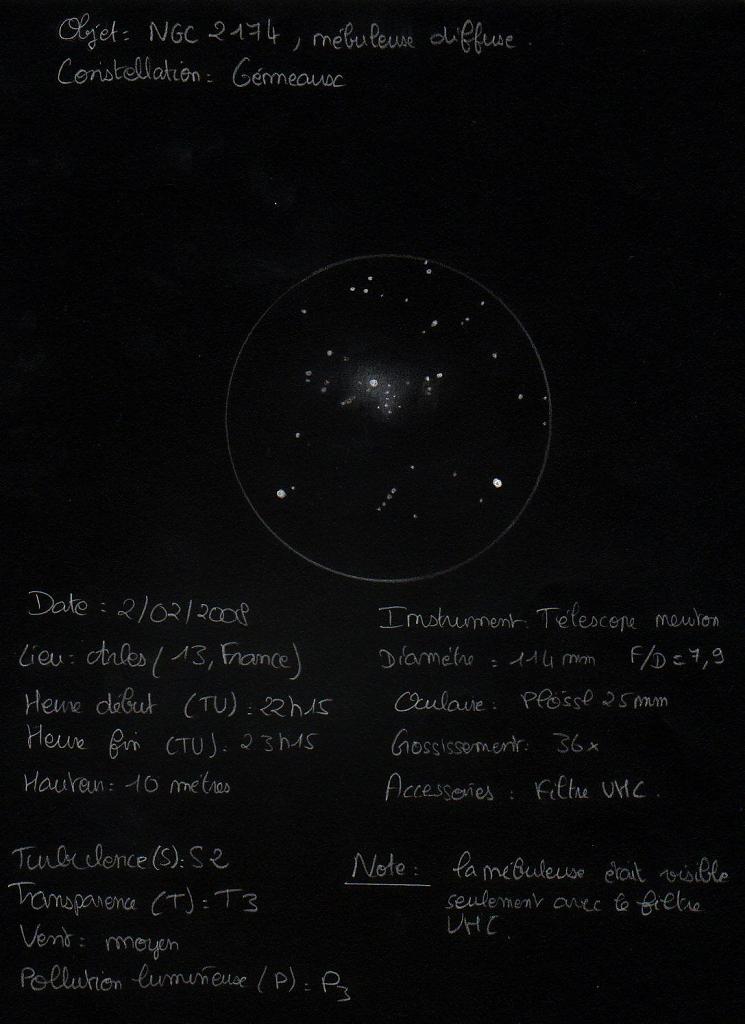 Objet: NGC 2174, nébuleuse diffuse.
Constellation: Gémeaux
Date: 2/02/2008
Lieu: Arles (13, France)
Heure début (TU): 22h15
Heure fin (TU): 23h15
Hauteur: 10 mètres
Instrument: Télescope newton
Diamètre: 114mm F/D=7,9
Oculaire: Plössl 25mm
Grossissement: 36x
Accessoires: Filtre UHC.
Turbulence (S): S2
Transparence (T): T3
Vent: moyen
Pollution lumineuse (P): P3
Note: la nébuleuse était visible
seulement avec le filtre
UHC.